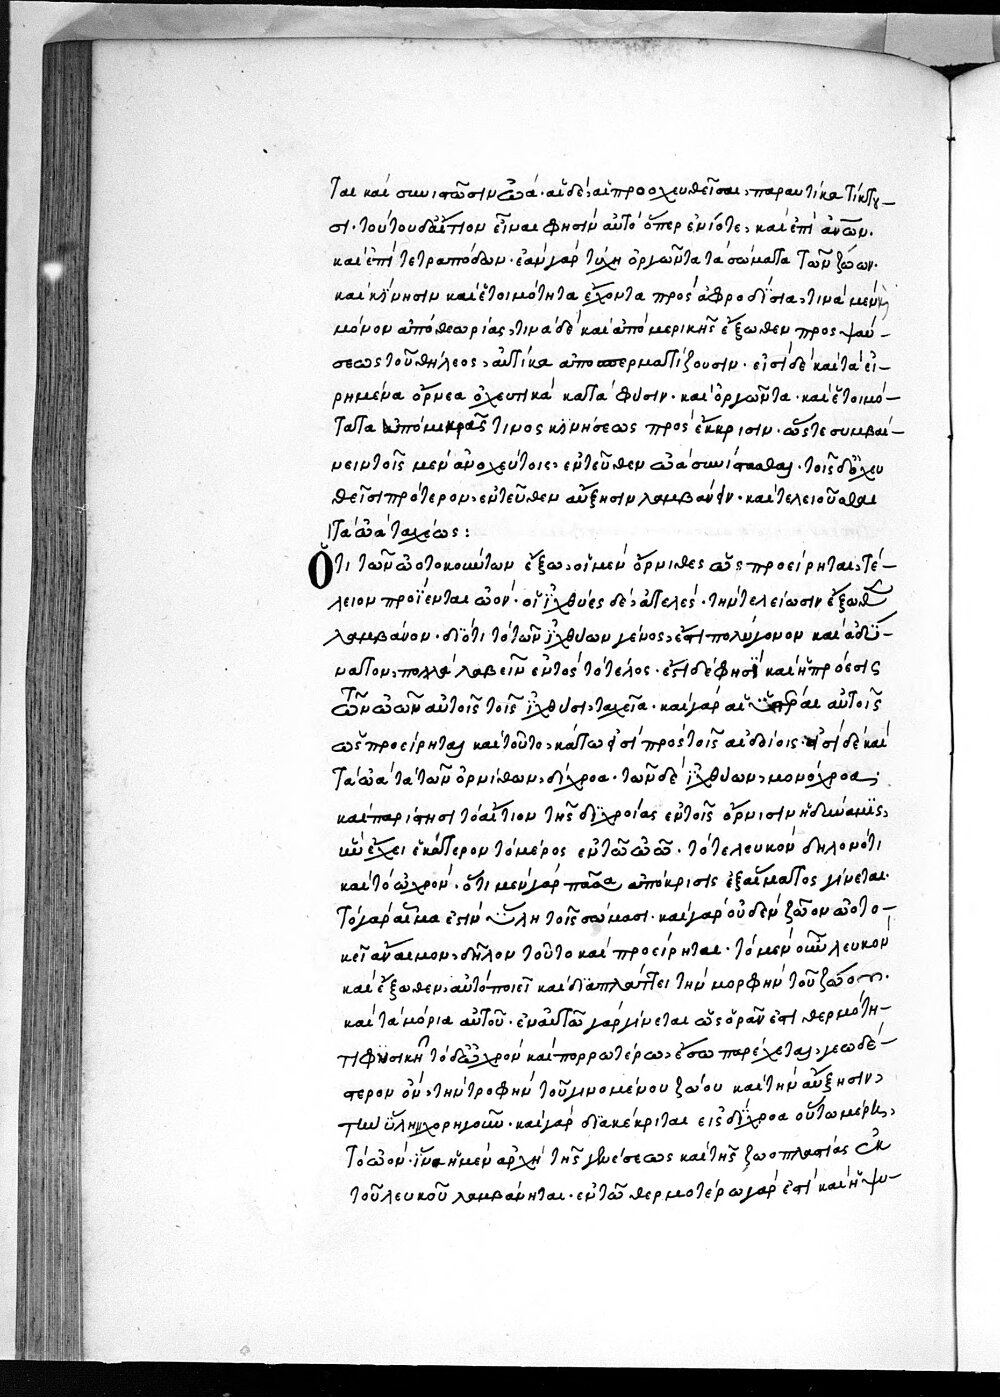 ται καὶ συνιστῶσιν ὠά· αἱ δὲ, αἱ προοχευθεῖσαι, παραυτίκα τίκτου-
σι. τούτου δ' αἴτιον εἶναι φησὶν αὐτὸ ὅπερ ἐνίοτε, καὶ ἐπὶ ἀνων.
καὶ ἐπὶ τετραπόδων. ἐὰν γὰρ τύχη ὀργῶντα τὰ σώματα τῶν ζώων.
καὶ κίνησιν καὶ ἑτοιμότητα ἔχοντα πρὸς ἀφροδίσια, τινὰ μὲν
μόνον ἀπὸ θεωρίας, τινὰ δὲ καὶ ἀπὸ μερικῆς ἔξωθεν προσψαύ-
σεως τοῦ θήλεος, αὐτίκα ἀποσπερματίζουσιν. εἰσὶ δὲ καὶ τὰ εἰ-
ρημένα ὄρνεα ὀχευτικὰ κατὰ φύσιν. καὶ ὀργῶντα. καὶ ἑτοιμό-
τατα ἀπὸ μικρᾶς τινος κινήσεως πρὸς ἔκκρισιν. ὥστε συμβαί-
νειν τοῖς μὲν ἀνοχεύτοις, ἐντεῦθεν ὠὰ συνίστασθαι. τοῖς δ' ὀχευ
θεῖσι πρότερον, ἐντεῦθεν αὔξησιν λαμβάνειν. καὶ τελειοῦσθαι
τὰ ὠὰ ταχέως:
Ὅτι τῶν ὠοτοκούντων ἔξω, οἱ μὲν ὄρνιθες ὡς προείρηται, τέ-
λειον προΐενται ὠόν. οἱ ἰχθύες δὲ, ἀτελές. τὴν τελείωσιν ἔξωθεν
λαμβάνον. διότι τὸ τῶν ἰχθύων γένος, ἐστὶ πολύγονον καὶ ἀδύ-
νατον, πολλὰ λαβεῖν ἐντὸς τὸ τέλος. ἔστι δὲ φησὶ καὶ ἡ πρόεσις
τῶν ὠῶν αὐτοῖς τοῖς ἰχθύσι, ταχεῖα. καὶ γὰρ αἱ ὑστέραι αὐτοῖς
ὡς προείρηται καὶ τοῦτο, κάτω εἰσὶ πρὸς τοῖς αἰδοίοις. εἰσὶ δὲ καὶ
τὰ ὠὰ τὰ τῶν ὀρνίθων, δίχροα. τῶν δὲ ἰχθύων, μονόχροα.
καὶ παρίστησι τὸ αἴτιον τῆς διχροίας ἐν τοῖς ὄρνισιν ἡ δύναμις,
ἣν ἔχει ἑκάτερον τὸ μέρος ἐν τῶ ὠῶ. τό τε λευκὸν δηλονότι
καὶ τὸ ὠχρόν. ὅτι μὲν γὰρ πᾶσα ἀπόκρισις ἐξ αἵματος γίνεται.
τὸ γὰρ αἷμα ἐστὶν ὕλη τοῖς σώμασι. καὶ γὰρ οὐδὲν ζῶον ὠοτο-
κεῖ ἄναιμον, δῆλον τοῦτο καὶ προείρηται. τὸ μὲν οὖν λευκὸν
καὶ ἔξωθεν, αὐτὸ ποιεῖ καὶ διαπλάττει τὴν μορφὴν τοῦ ζώου.
καὶ τὰ μόρια αὐτοῦ. ἐν αὐτῶ γὰρ γίνεται ὡς ὁρᾶν ἐστι θερμότη-
τι φυσικῆ τὸ δ' ὠχρὸν καὶ πορρωτέρω, ἔσω παρέχεται, γεωδέ-
στερον ὂν, τὴν τροφὴν τοῦ γινομένου ζώου καὶ τὴν αὔξησιν,
τὴν ὕλην χορηγοῦν. καὶ γὰρ διακέκριται εἰς δίχροα οὕτω μέρη,
τὸ ὠόν. ἵνα ἡ μὲν ἀρχὴ τῆς γενέσεως καὶ τῆς ζωοπλασίας ἐκ
τοῦ λευκοῦ λαμβάνηται. ἐν τῶ θερμοτέρω γὰρ ἐστὶ καὶ ἡ ψυ-